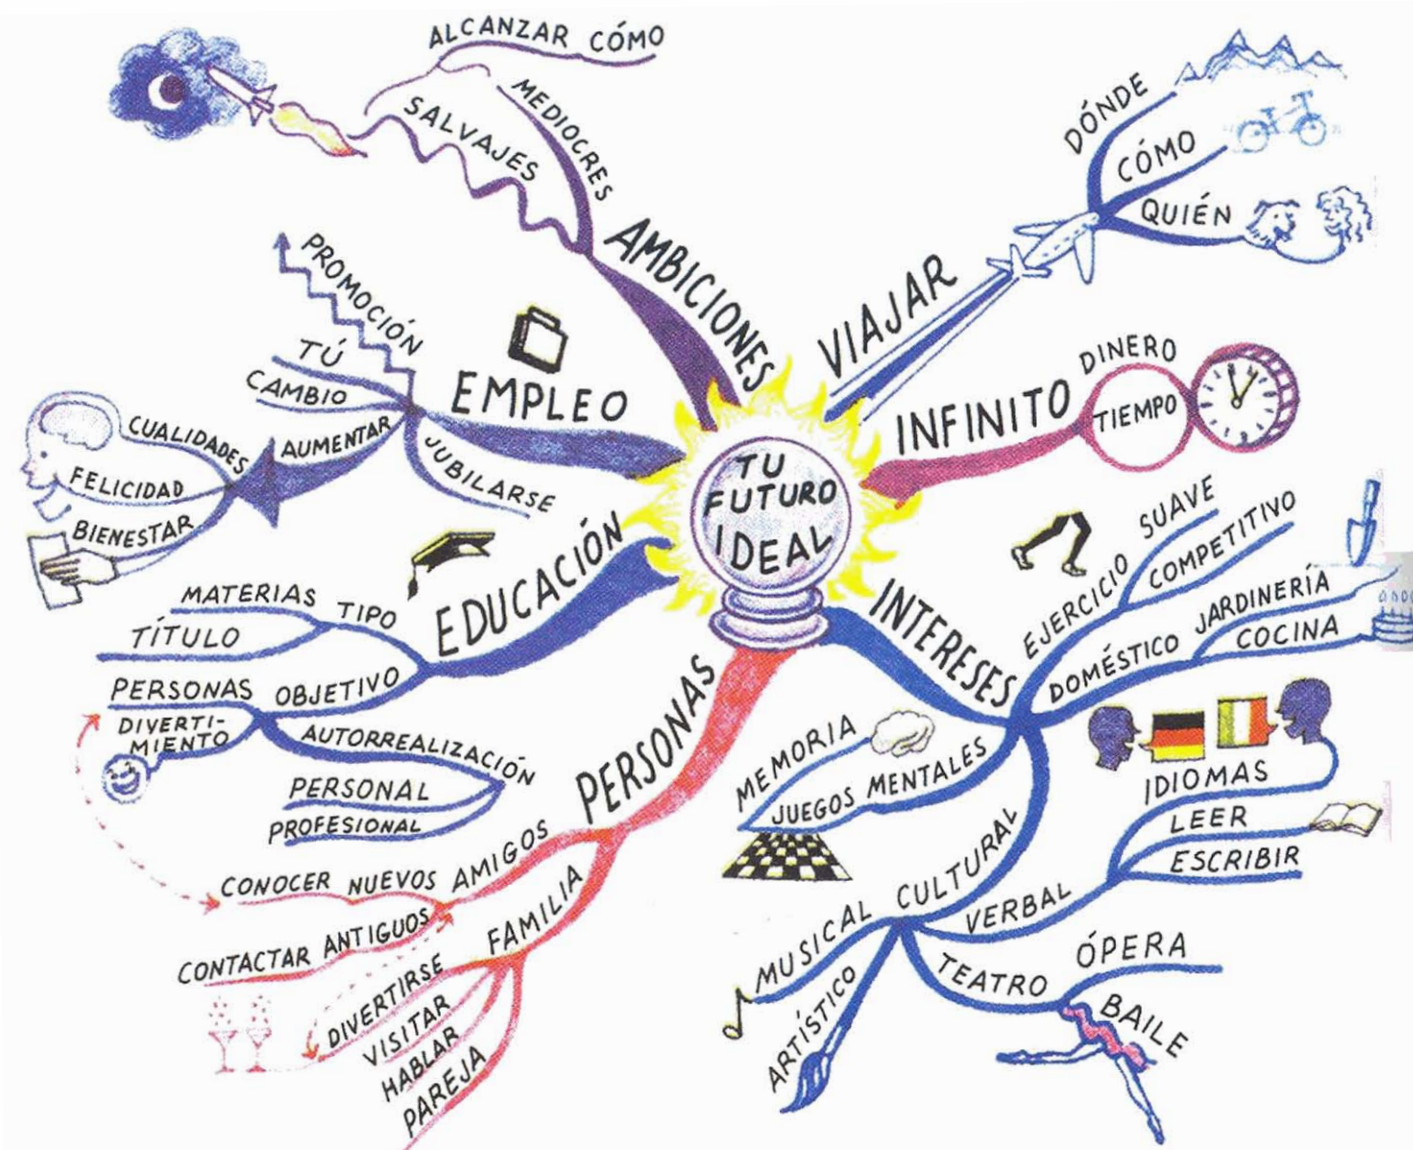 TU
FUTURO
IDEAL
AMBICIONES
MEDIOCRES
SALVAJES
ALCANZAR CÓMO
VIAJAR
DÓNDE
CÓMO
QUIÉN
INFINITO
DINERO
TIEMPO
INTERESES
EJERCICIO
SUAVE
COMPETITIVO
DOMÉSTICO
JARDINERÍA
COCINA
JUEGOS MENTALES
MEMORIA
CULTURAL
VERBAL
IDIOMAS
LEER
ESCRIBIR
TEATRO
ÓPERA
BAILE
ARTÍSTICO
MUSICAL
PERSONAS
AMIGOS
CONOCER NUEVOS
CONTACTAR ANTIGUOS
FAMILIA
DIVERTIRSE
VISITAR
HABLAR
PAREJA
EDUCACIÓN
TIPO
MATERIAS
TÍTULO
OBJETIVO
PERSONAS
DIVERTI-
MIENTO
AUTORREALIZACIÓN
PERSONAL
PROFESIONAL
EMPLEO
PROMOCIÓN
TÚ
CAMBIO
AUMENTAR
CUALIDADES
FELICIDAD
BIENESTAR
JUBILARSE